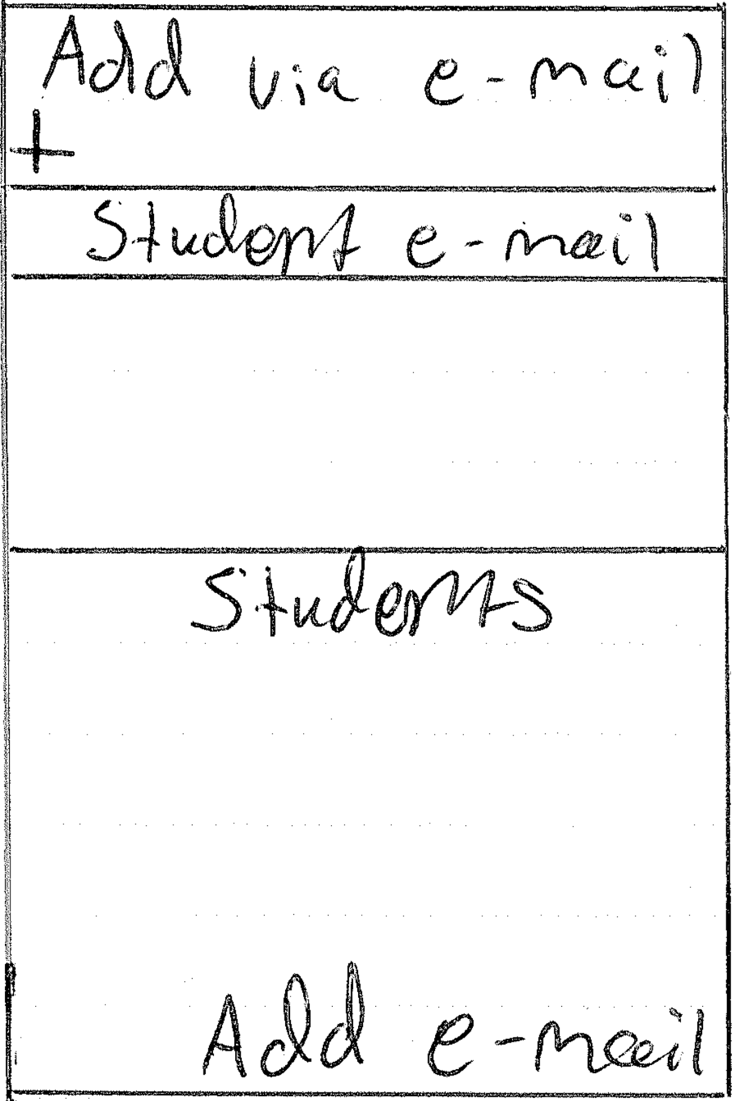 Add via e-mail
+
Student e-mail
Students
Add e-mail